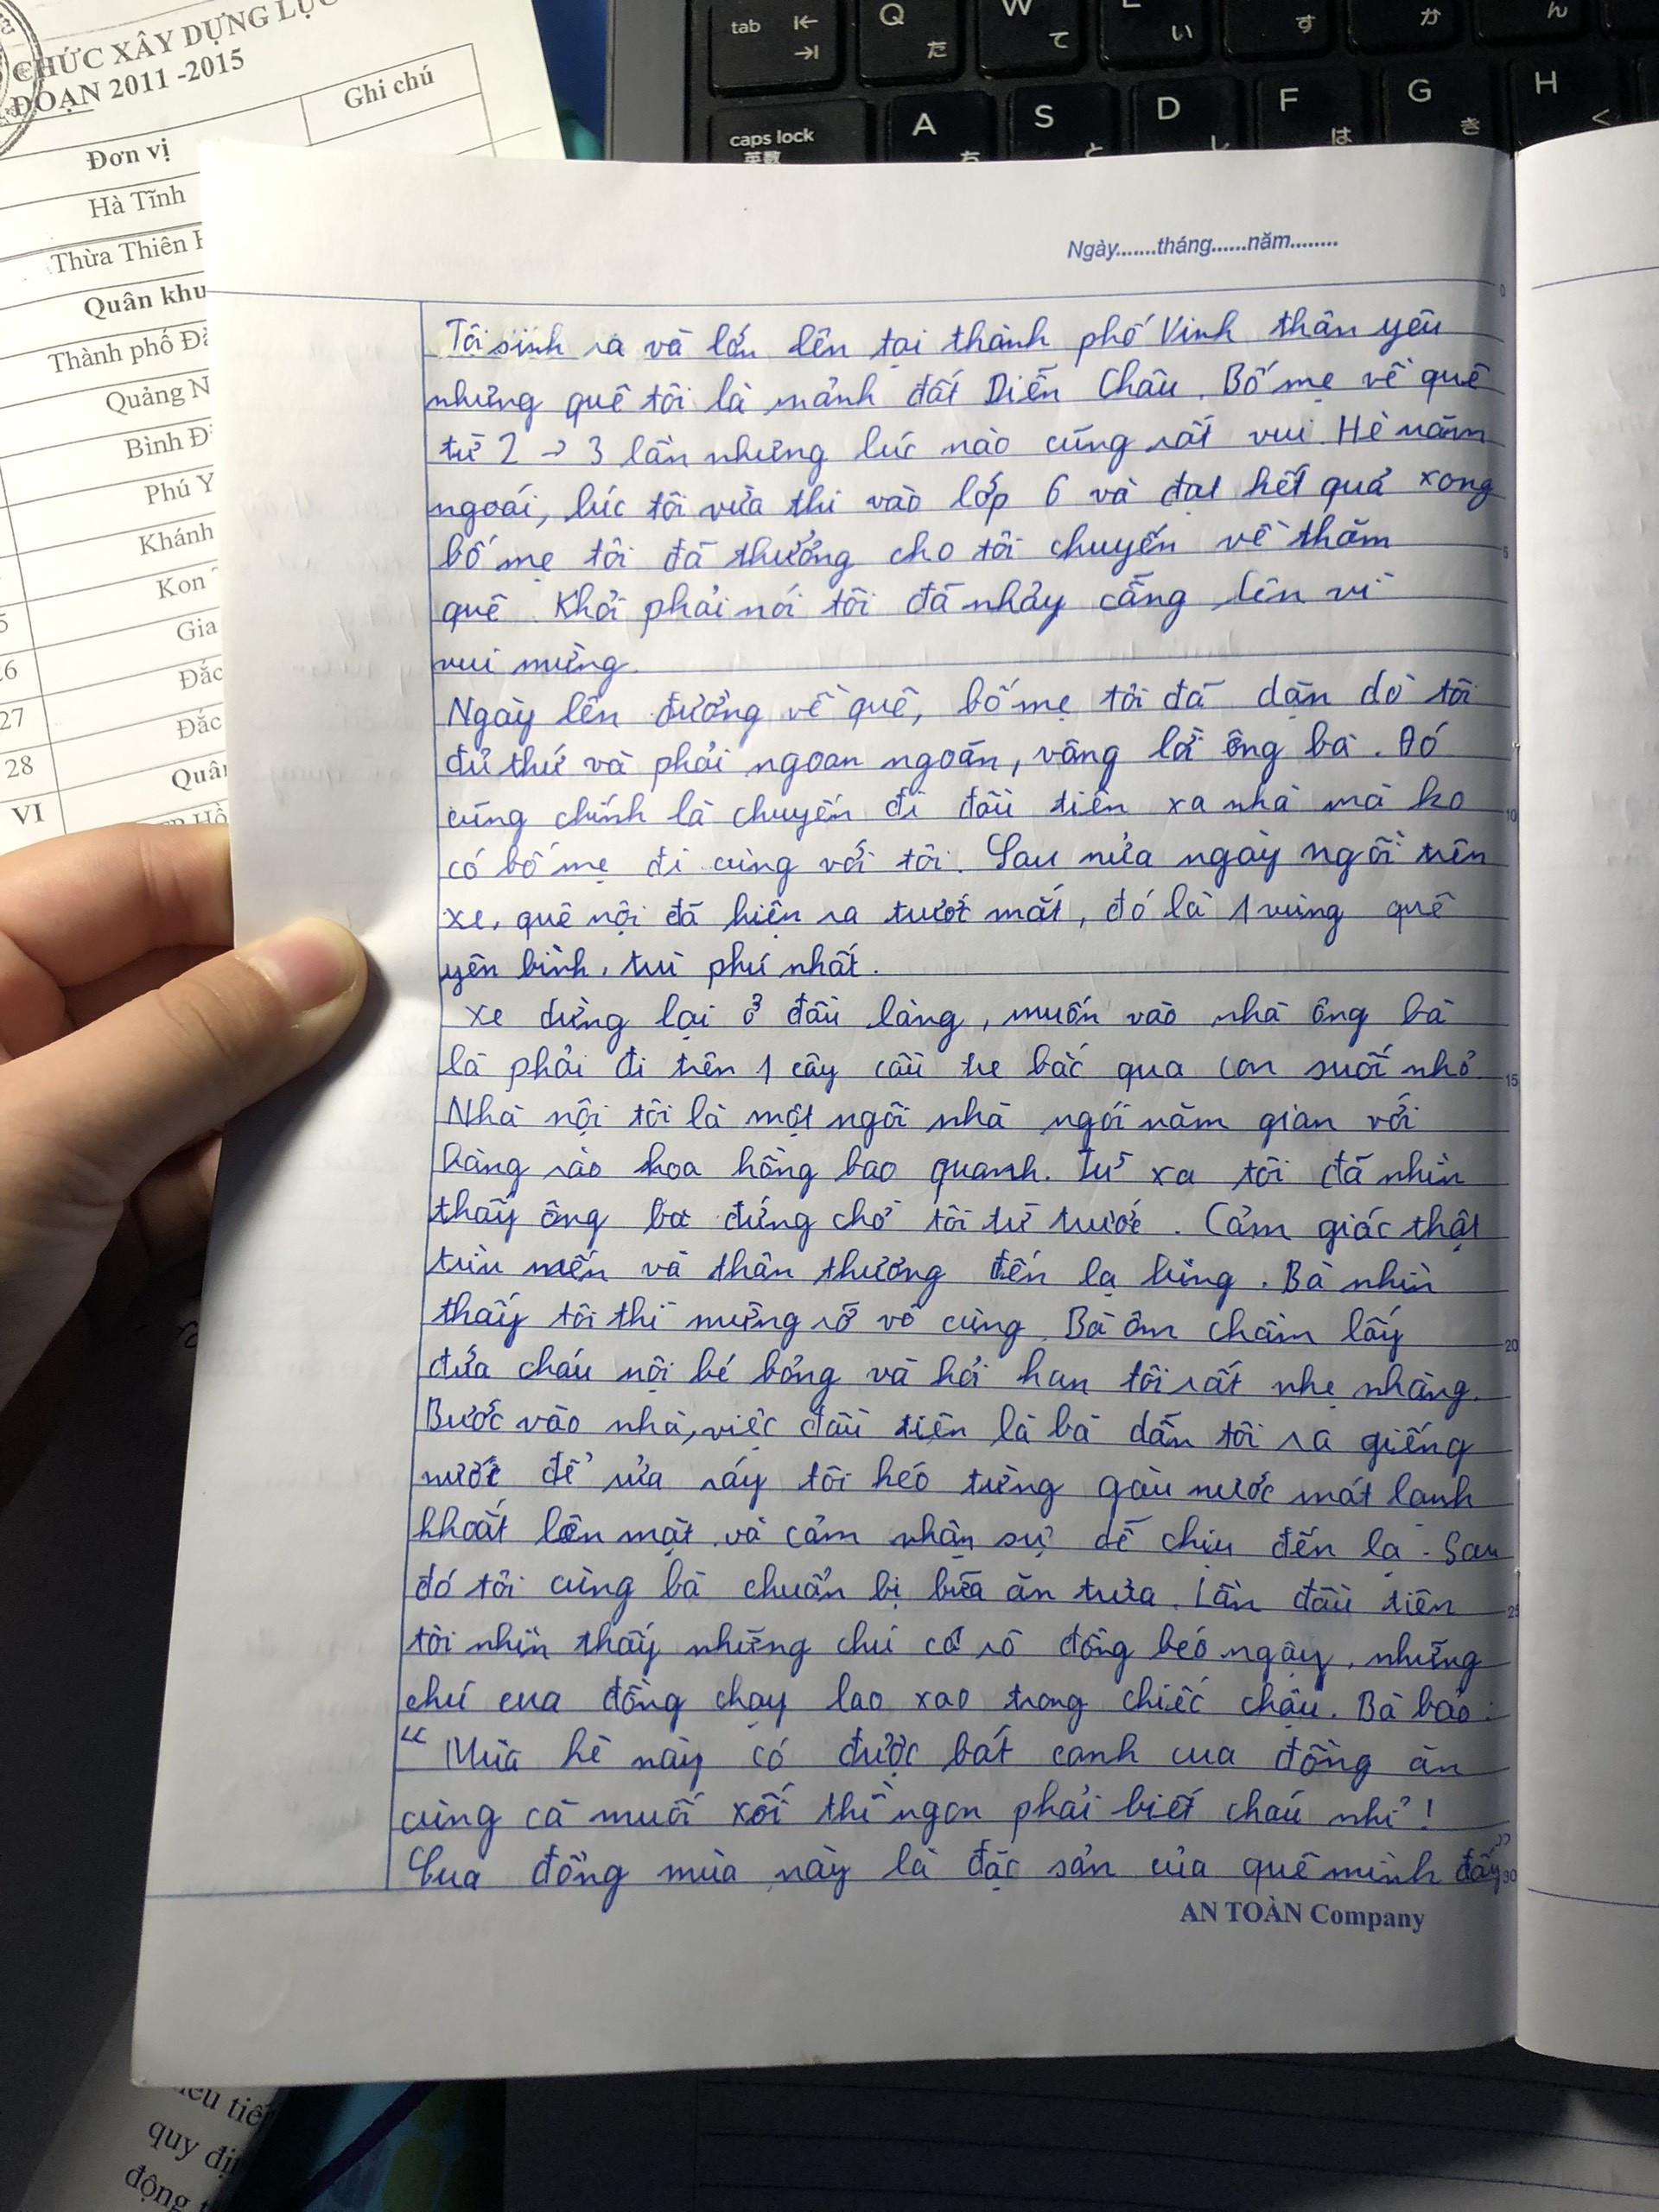 CHỨC XÂY DỰNG LỰC
ĐOẠN 2011 -2015
Đơn vị
Ghi chú
Hà Tĩnh
Thừa Thiên
Quân khu
Thành phố
Quảng
Bình
Phú Y
Khánh
Kon
Gia
26
Đắc
27
Đắc
28
Quân
VI
tab
Q
W
た
て
い
す
か
ん
caps lock
英数
A
S
D
F
G
H
ち
と
し
は
き
く
Ngày.......tháng......năm........
Tôi sinh ra và lớn lên tại thành phố Vinh thân yêu
nhưng quê tôi là mảnh đất Diễn Châu. Bố mẹ về quê
từ 2 → 3 lần nhưng lúc nào cũng rất vui. Hè năm
ngoái, lúc tôi vừa thi vào lớp 6 và đạt kết quả xong
bố mẹ tôi đã thưởng cho tôi chuyến về thăm
quê. Khỏi phải nói tôi đã nhảy cẫng lên vì
vui mừng.
Ngày lên đường về quê, bố mẹ tôi đã dặn dò tôi
đủ thứ và phải ngoan ngoãn, vâng lời ông bà. Đó
cũng chính là chuyến đi đầu tiên xa nhà mà ko
có bố mẹ đi cùng với tôi. Sau nửa ngày ngồi trên
xe, quê nội đã hiện ra trước mắt, đó là 1 vùng quê
yên bình, trù phú nhất.
Xe dừng lại ở đầu làng, muốn vào nhà ông bà
là phải đi trên 1 cây cầu tre bắc qua con suối nhỏ.
Nhà nội tôi là một ngôi nhà ngói năm gian với
hàng rào hoa hồng bao quanh. Từ xa tôi đã nhìn
thấy ông bà đứng chờ tôi từ trước. Cảm giác thật
trìu mến và thân thương đến lạ lùng. Bà nhìn
thấy tôi thì mừng rỡ vô cùng. Bà ôm chầm lấy
đứa cháu nội bé bỏng và hỏi han tôi rất nhẹ nhàng.
Bước vào nhà, việc đầu tiên là bà dẫn tôi ra giếng
nước để rửa ráy tôi kéo từng gàu nước mát lạnh
khoát lên mặt và cảm nhận sự dễ chịu đến lạ. Sau
đó tôi cùng bà chuẩn bị bữa ăn trưa. Lần đầu tiên
tôi nhìn thấy những chú cá rô đồng béo ngậy, những
chú cua đồng chạy lao xao trong chiếc chậu. Bà bảo:
“Mùa hè này có được bát canh cua đồng ăn
cùng cà muối xổi thì ngon phải biết cháu nhỉ!
Cua đồng mùa này là đặc sản của quê mình đấy”
0
5
10
15
20
25
30
AN TOÀN Company
quy
động